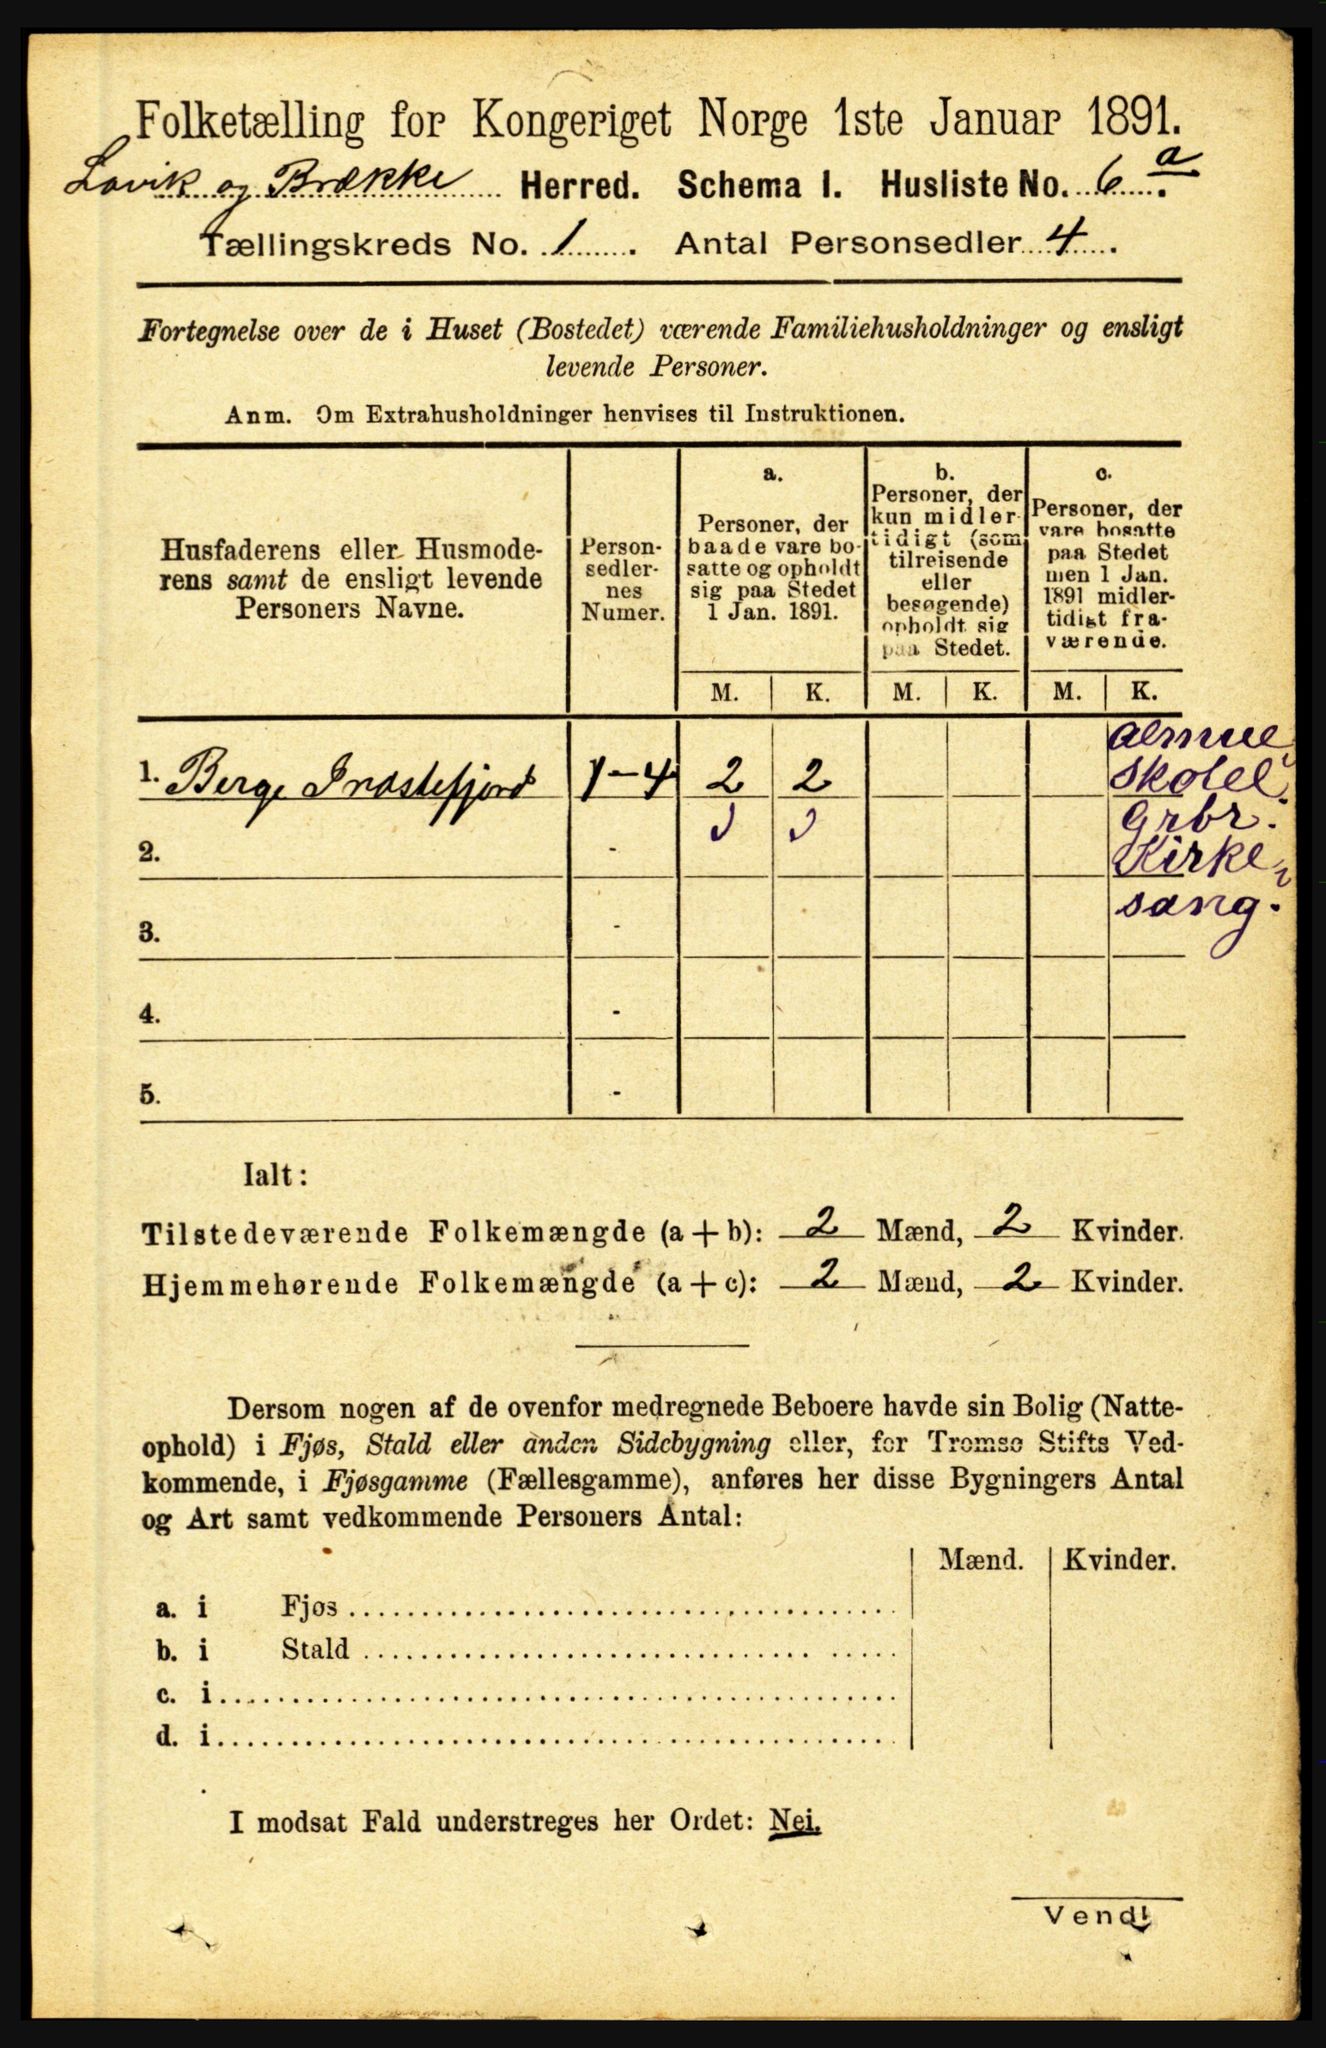 Folketælling for Kongeriget Norge 1ste Januar 1891.
Lavik og Brække Herred. Schema 1. Husliste No. 6 a.
Tællingskreds No. 1. Antal Personsedler 4.
Fortegnelse over de i Huset (Bostedet) værende Familiehusholdninger og ensligt
levende Personer.
Anm. Om Extrahusholdninger henvises til Instruktionen.
Husfaderens eller Husmode-
rens samt de ensligt levende
Personers Navne.
Person-
sedler-
nes
Numer.
a.
Personer, der
baade vare bo-
satte og opholdt
sig paa Stedet
1 Jan. 1891.
b.
Personer, der
kun midler-
tidigt (som
tilreisende
eller
besøgende)
opholdt sig
paa Stedet.
c.
Personer, der
vare bosatte
paa Stedet
men 1 Jan.
1891 midler-
tidigt fra-
værende.
M. K. M. K. M. K.
1. Berge Indstefjord 1-4 2 2
almue
skolel.
Grbr.
Kirke
sang.
2. -
3. -
4. -
5. -
Ialt:
Tilstedeværende Folkemængde (a + b): 2 Mænd, 2 Kvinder.
Hjemmehørende Folkemængde (a + c): 2 Mænd, 2 Kvinder.
Dersom nogen af de ovenfor medregnede Beboere havde sin Bolig (Natte-
ophold) i Fjøs, Stald eller anden Sidebygning eller, for Tromsø Stifts Ved-
kommende, i Fjøsgamme (Fællesgamme), anføres her disse Bygningers Antal
og Art samt vedkommende Personers Antal:
Mænd. Kvinder.
a. i Fjøs
b. i Stald
c. i
d. i
I modsat Fald understreges her Ordet: Nei.
Vend!